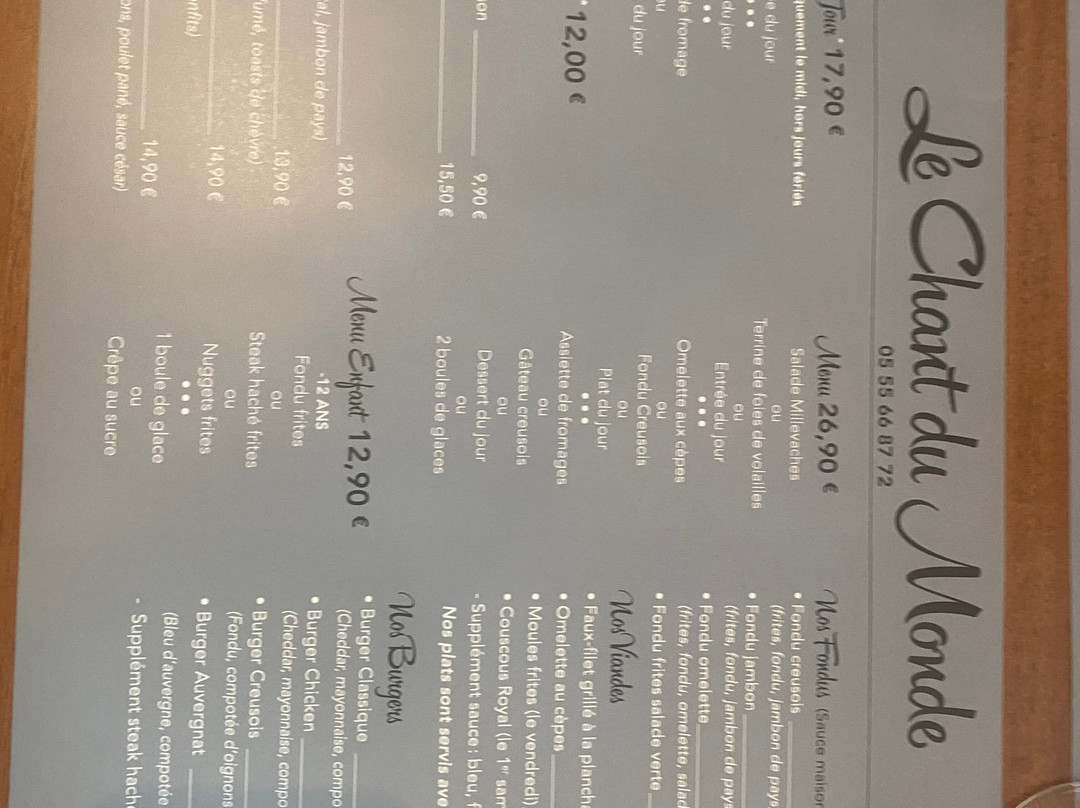 Le Chant du Monde
05 55 66 87 72
Jour* 17,90 €
quement le midi, hors jours fériés
e du jour
•••
du jour
•••
de fromage
ou
du jour
* 12,00 €
on 9,90 €
15,50 €
12,90 €
al, jambon de pays)
13,90 €
umé, toasts de chèvre)
14,90 €
nfits)
14,90 €
ons, poulet pané, sauce césar)
Menu 26,90 €
Salade Millevaches
ou
Terrine de foies de volailles
ou
Entrée du jour
•••
Omelette aux cèpes
ou
Fondu Creusois
ou
Plat du jour
•••
Assiette de fromages
ou
Gâteau creusois
ou
Dessert du jour
ou
2 boules de glaces
Menu Enfant 12,90 €
-12 ANS
Fondu frites
ou
Steak haché frites
ou
Nuggets frites
•••
1 boule de glace
ou
Crêpe au sucre
Nos Fondus (Sauce maison
• Fondu creusois
(frites, fondu, jambon de pays
• Fondu jambon
(frites, fondu, jambon de pays
• Fondu omelette
(frites, fondu, omelette, salad
• Fondu frites salade verte
Nos Viandes
• Faux-filet grillé à la planch
• Omelette au cèpes
• Moules frites (le vendredi)
• Couscous Royal (le 1er sam
- Supplément sauce : bleu, f
Nos plats sont servis ave
Nos Burgers
• Burger Classique
(Cheddar, mayonnaise, compo
• Burger Chicken
(Cheddar, mayonnaise, compo
• Burger Creusois
(Fondu, compotée d'oignons
• Burger Auvergnat
(Bleu d'auvergne, compotée
- Supplément steak hach